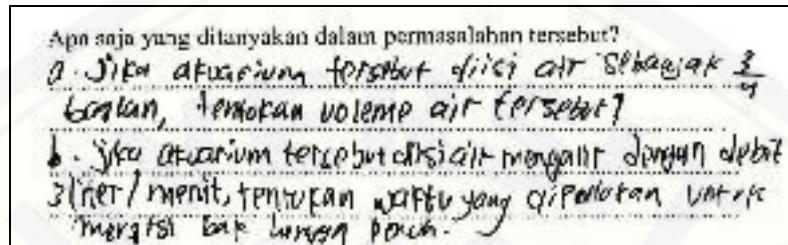 Apa saja yang ditanyakan dalam permasalahan tersebut?
a. Jika akuarium tersebut diisi air sebanyak 3/4
bagian, tentukan voleme air tersebut!
b. jika akuarium tersebut diisi air mengalir dengan debit
3 liter / menit, tentukan waktu yang diperlukan untuk
mengisi bak hingga penuh.